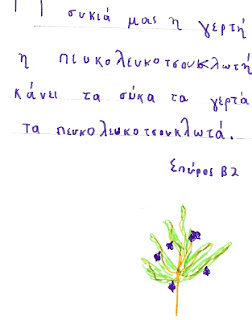 Η συκιά μας η γερτή
η πευκολευκοτσουκλωτή
κάνει τα σύκα τα γερτά
τα πευκολευκοτσουκλωτά.
Σπύρος Β2